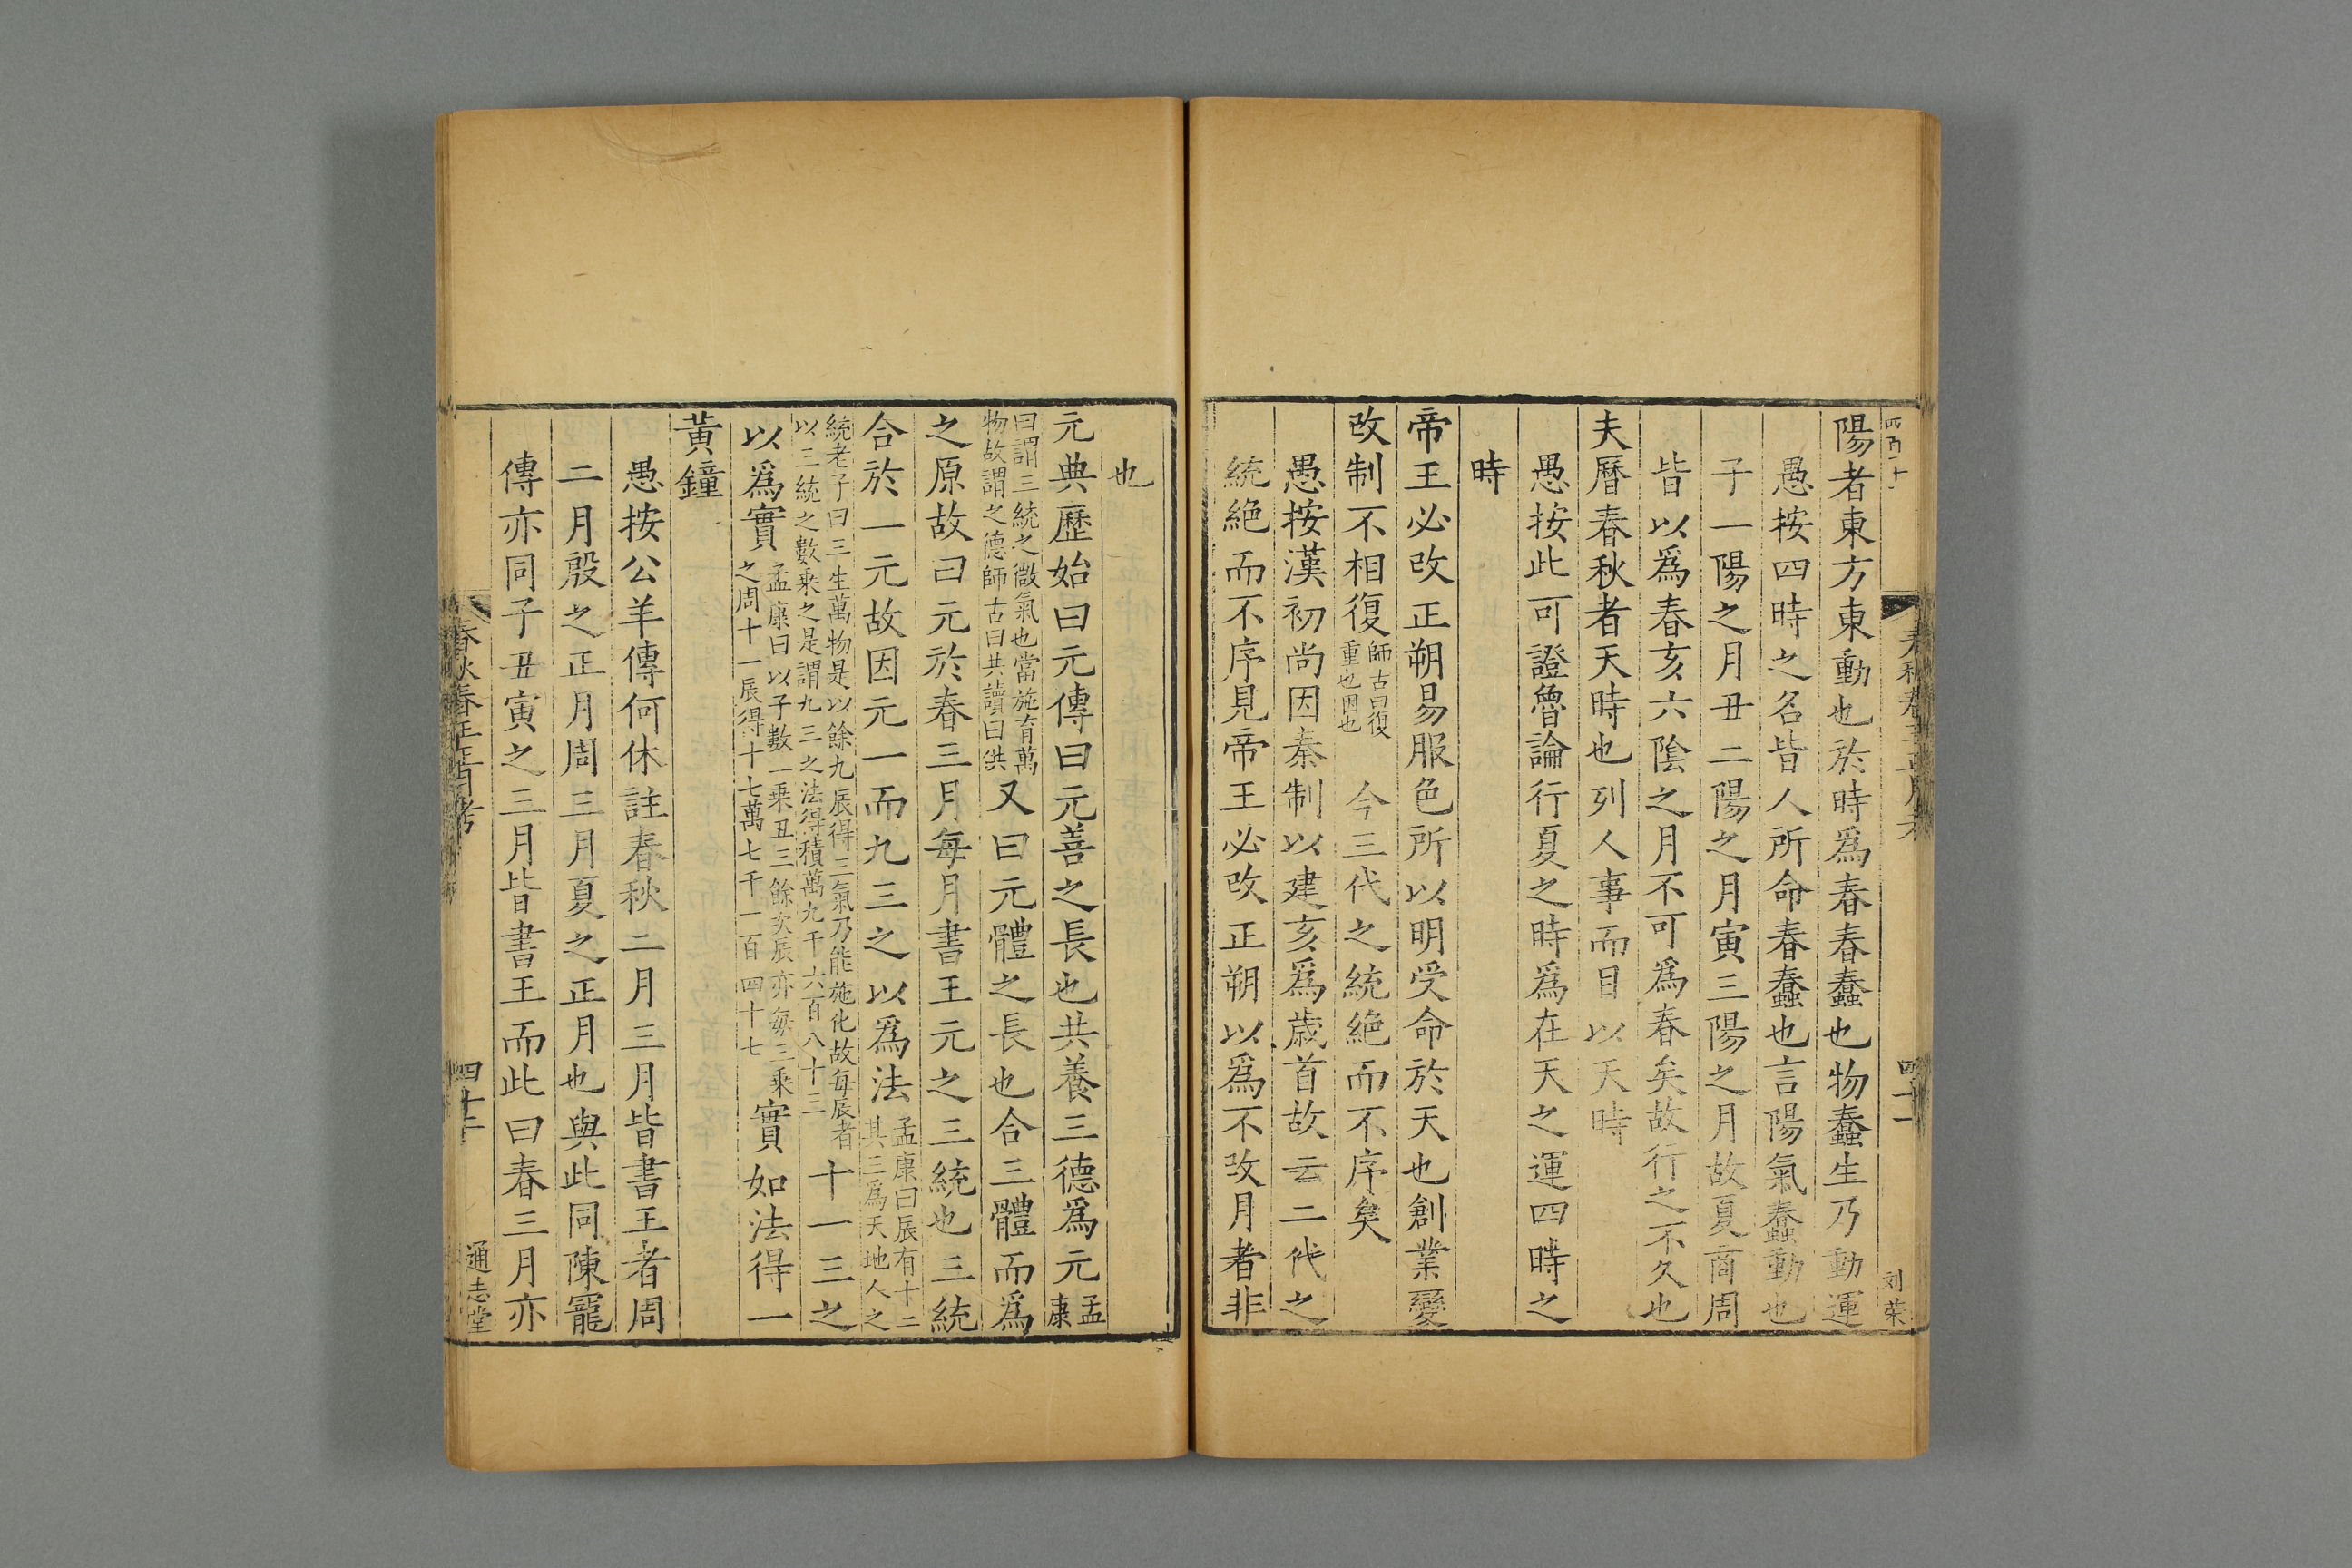 四百二十
春秋春王正月考
四十一
刘荣
陽者東方東動也於時爲春春蠢也物蠢生乃動運
愚按四時之名皆人所命春蠢也言陽氣蠢動也
子一陽之月丑二陽之月寅三陽之月故夏商周
皆以爲春亥六陰之月不可爲春矣故行之不久也
夫曆春秋者天時也列人事而目以天時
愚按此可證魯論行夏之時爲在天之運四時之
時
帝王必改正朔易服色所以明受命於天也創業變
改制不相復師古曰復重也因也今三代之統絶而不序矣
愚按漢初尚因秦制以建亥爲歲首故云二代之
統絶而不序見帝王必改正朔以爲不改月者非
也
元典歷始曰元傳曰元善之長也共養三德爲元孟康
曰謂三統之微氣也當施育萬物故謂之德師古曰共讀曰供又曰元體之長也合三體而爲
之原故曰元於春三月每月書王元之三統也三統
合於一元故因元一而九三之以爲法孟康曰辰有十二其三爲天地人之
統老子曰三生萬物是以餘九辰得三氣乃能施化故每辰者以三統之數乘之是謂九三之法得積萬九千六百八十三十一三之
以爲實孟康曰以子數一乘丑三餘次辰亦每三乘之周十一辰得十七萬七千一百四十七實如法得一
黃鐘
愚按公羊傳何休註春秋二月三月皆書王者周
二月殷之正月周三月夏之正月也與此同陳寵
傳亦同子丑寅之三月皆書王而此曰春三月亦
春秋春王正月考
四十二
通志堂